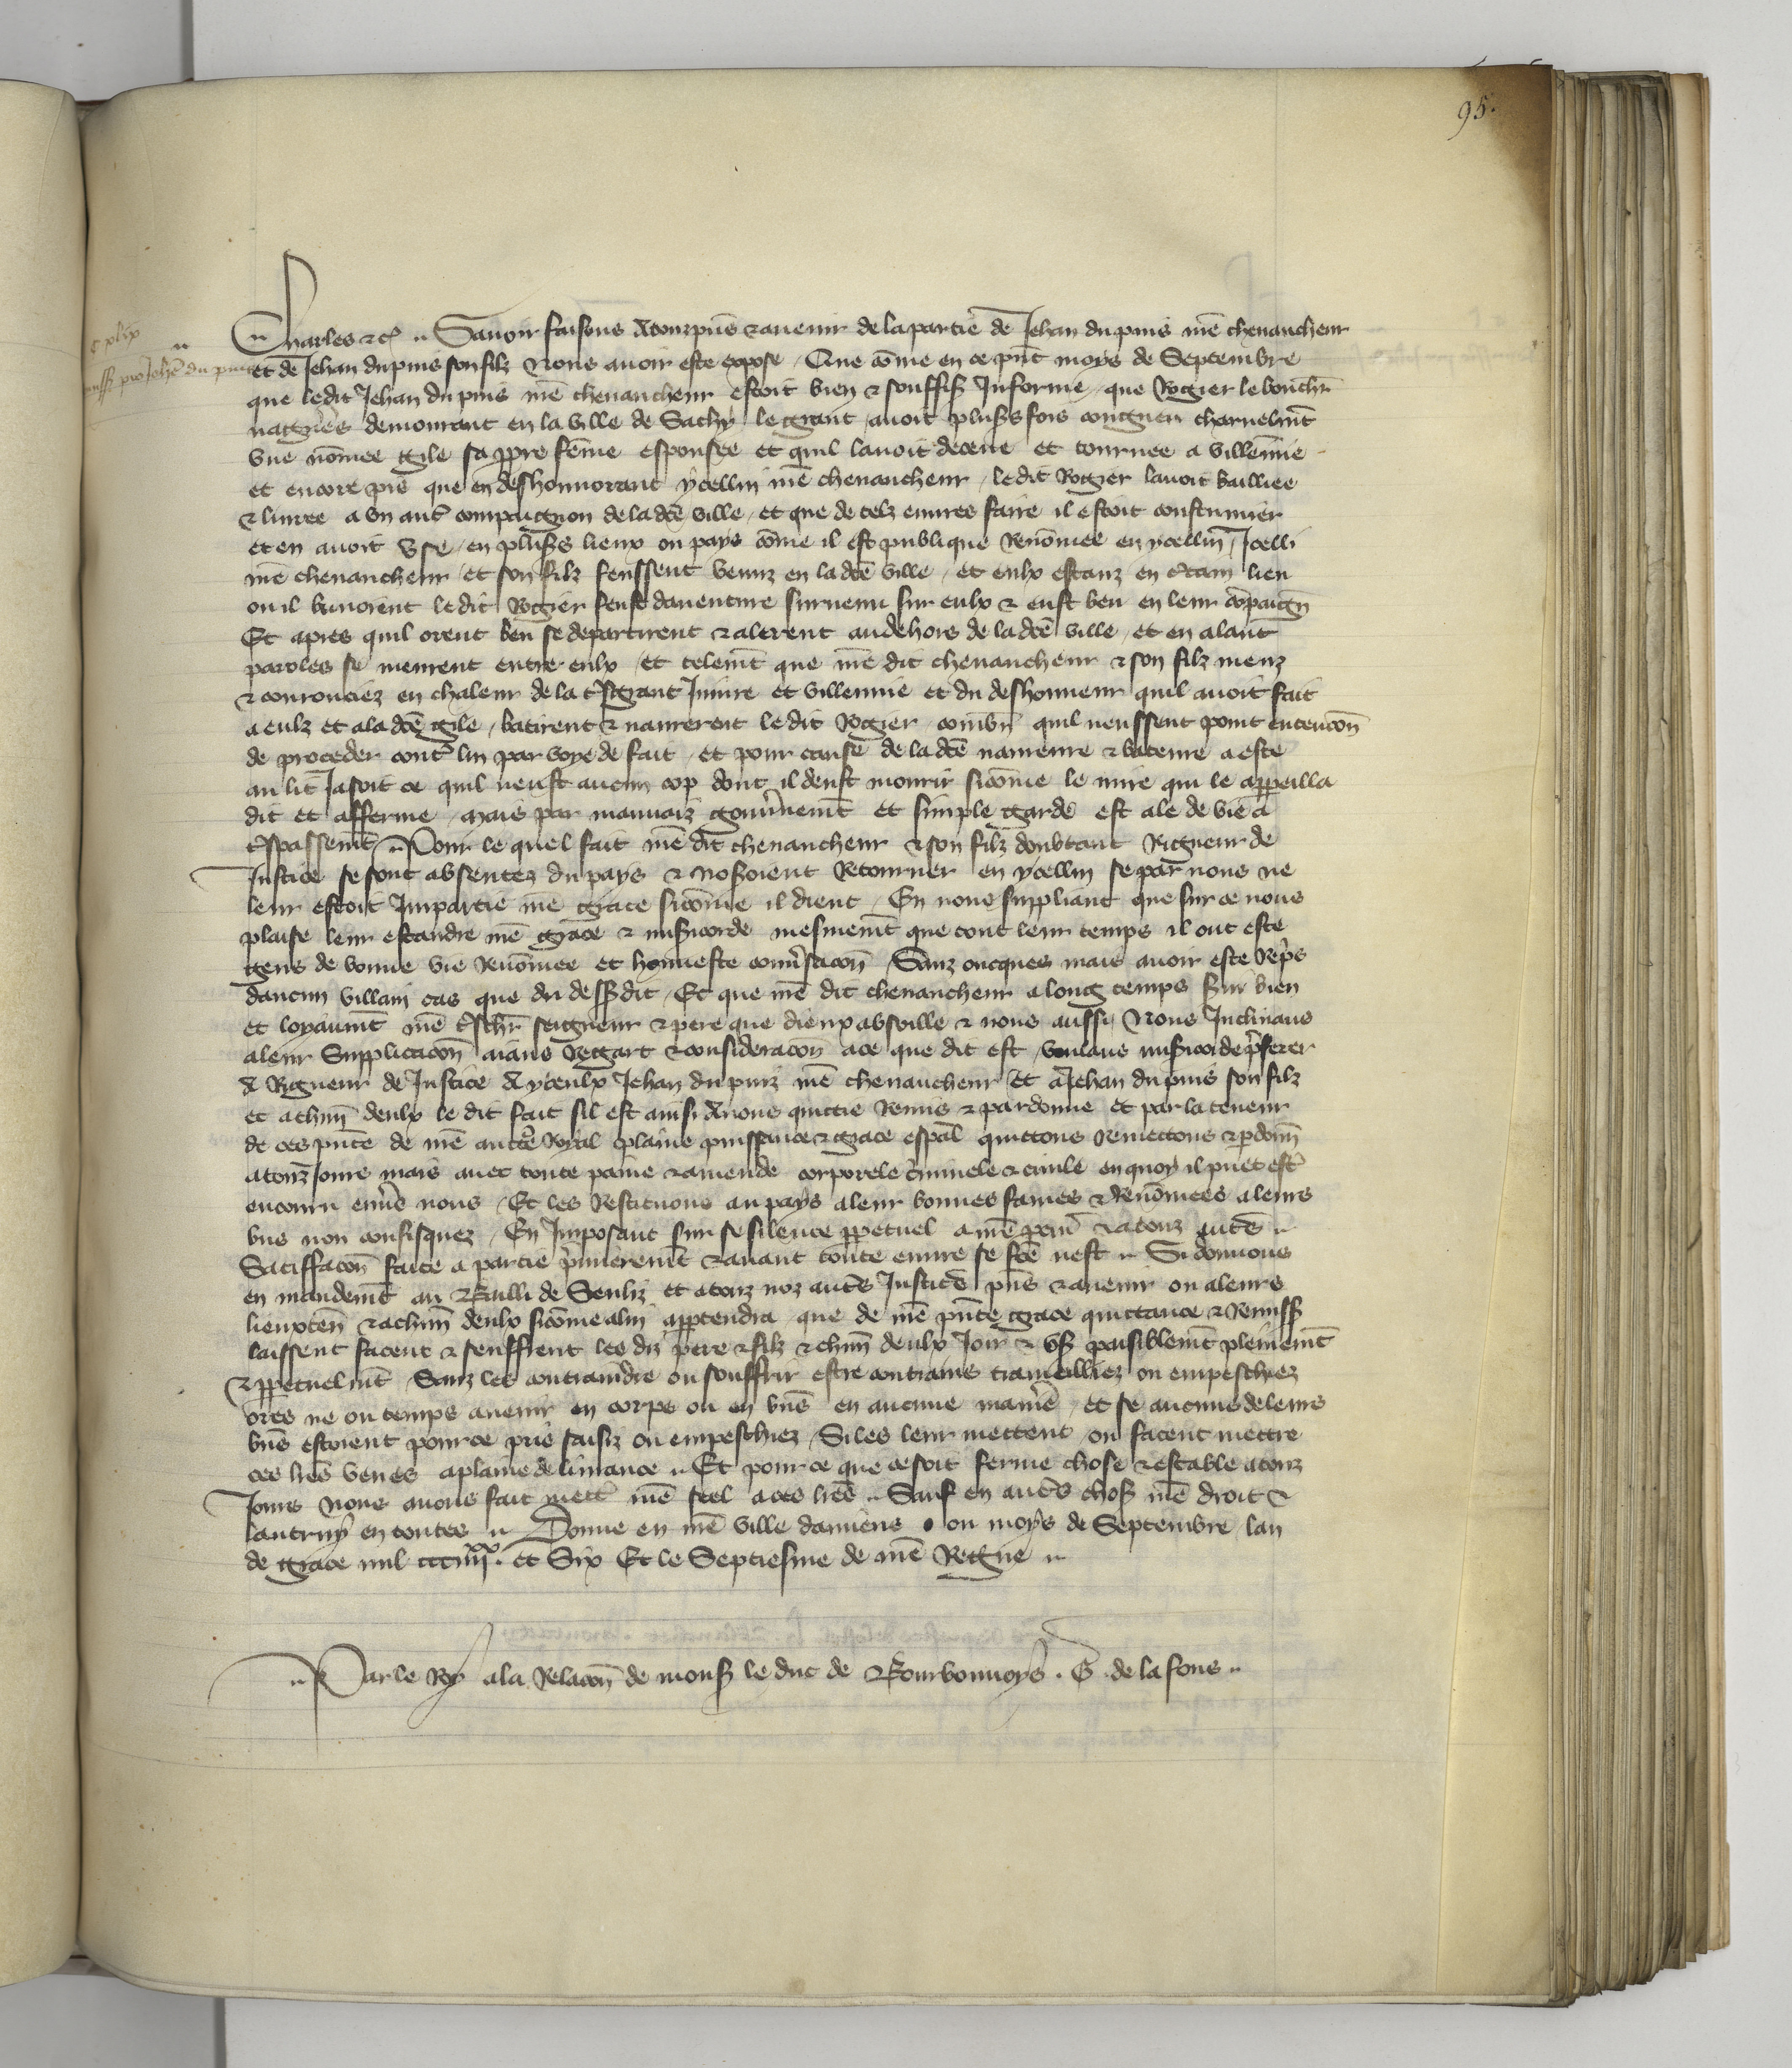 95.
Charles &c̃. Savoir faisons A touz p̃ns & avenir de la partie de Jehan du puis nr̃e chevaucheur
et de Jehan du puis son filz Nous avoir este expose Que cõme en ce p̃nt moys de Septembre
que ledit Jehan du puis nr̃e chevaucheur estoit bien & souffis̃ Informe que Rogier le bouch̃r
nagueres demourant en la ville de Sachy le grant avoit plus̃s fois congneu charnelm̃t
une nõmee gile sa ꝓpre fẽme espousee et quil lavoit deceue et tournee a villennie
et encore pis que en deshonnorant ycellui nr̃e chevaucheur ledit Rogier lavoit bailliee
& livree a un aut̃ compaignon de lad̃ce ville et que de telz euvres faire il estoit coustumier
et en avoit use en plus̃s lieux ou pays cõme il est publique Renõmee en ycellui Icelli
nr̃e chevaucheur et son filz feussent venuz en lad̃ce ville et eulx estanz en c̃tain lieu
ou il buvoient ledit Rogier feust daventure survenu sur eulx & eust beu en leur cõpaign̄
Et apres quil orent beu se departirent & alerent au dehors de lad̃ce ville et en alant
paroles se meurent entre eulx et telem̃t que nr̃e dit chevaucheur & son filz meuz
& courouciez en chaleur de la t̃sgrant Injure et villennie et du deshonneur quil avoit fait
a eulz et a lad̃ce gile batirent & navrerent ledit Rogier combñ quil neussent point entencõn
de proceder cont̃ lui par voye de fait et pour cause de lad̃ce navreure & bateure a este
au lit Jasoit ce quil neust aucun cop dont il deust mourir sicõme le mire qui le appeilla
dit et afferme mais par mauvaiz gouv̾nem̃t et simple garde est ale de vie a
t̃spassem̃t Pour le quel fait nr̃e dit chevaucheur & son filz doubtant Rigueur de
Justice se sont absentez du pays & nosoient Retourner en ycellui se par nous ne
leur estoit Impartie nr̃e grace sicõme il dient En nous suppliant que sur ce nous
plaise leur estandre nr̃e grace & mis̃icorde mesmem̃t que tout leur temps il ont este
gens de bonne vie Renõmee et honneste conv̾sacõn Sanz oncques mais avoir este Rep̾s
daucun villain cas que du dess̃dit Et que nr̃e dit chevaucheur a long temps s̾vi bien
et loyaum̃t nr̃e t̃sch̃r seigneur & pere que dieux absoille & nous aussi Nous Inclinans
a leur Supplicacõn aians Regart & consideracõn a ce que dit est voulans mis̃icorde p̾ferer
A Rigueur de Justice A yceulx Jehan du puiz nr̃e chevaucheur Et a Jehan du puis son filz
et a ch̃un deulx le dit fait sil est ainsi Avons quictie Remis & pardonne et par la teneur
de ces p̃ntes de nr̃e auct̃e Royal plaine puissance & grace esp̃al quictons Remettons & ꝑdonñ
a touz Jours mais avec toute paine & amende corporele c̾minele & civile en quoy il puet est̃
encouru env̾s nous Et les Restituons au pays a leur bonnes fames & Renõmees a leurs
bñs non confisquez En Imposant sur se silence ꝑpetuel a nr̃e ꝓcur̃ & a touz aut̃s
Satiffacõn faite a partie p̾mierem̃t & avant toute euvre se f̃ce nest Si donnons
en mandem̃t au Bailli de Senliz et a touz noz aut̃s Justic̃s p̃ns & avenir ou a leurs
lieuxteñ & a ch̃un deulx sicõme a lui appartendra que de nr̃e p̃nte grace quictance & Remiss̃
laissent facent & seuffrent les diz pere & filz & ch̃un deulx Joir & us̃ paisiblem̃t pleinem̃t
& ꝑpetuelm̃t Sanz les contraindre ou souffrir estre contrains travailliez ou empeschiez
ores ne ou temps avenir en corps ou en bñs en aucune mañie et se aucuns de leurs
bñs estoient pour ce pris saisiz ou empeschiez Si les leur mettent ou facent mettre
ces lr̃es veues a plaine delivrance Et pour ce que ce soit ferme chose & estable a touz
Jours Nous avons fait mett̃ nr̃e seel a ces lr̃es Sauf en aut̃s chos̃ nr̃e droit &
lautruy en toutes Donne en nr̃e ville damiens ou moys de Septembre lan
de grace mil CCC IIIIxx. et Six Et le Septiesme de nr̃e Regne
Par le Roy a la Relacõn de mons̃ le duc de Bourbonnoys. G. de la fons